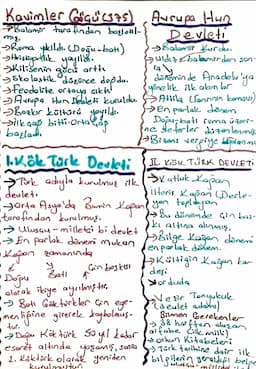 Kavimler Göçü (375)
→ Balamir tarafından başlatıl-
mış.
→ Roma yıkıldı. (Doğu-batı)
→ Hristiyanlık yayıldı.
→ Kilisenin gücü arttı
→ Skolastik düşünce doğdu.
→ Feodalite ortaya çıktı
→ Avrupa Hun Devleti kuruldu.
→ kültürü yayıldı.
→ İlk çağ bitti-Orta çağ
başladı.
Avrupa Hun
Devleti
→ Balamir kurdu.
→ Uldız
döneminde Anadolu'ya
yönelik ilk akınlar
→ Attila (Tanrının kırbacı)
→ En parlak dönem
Doğu-batı roma üzeri-
ne seferler düzenlenmiş
Bizans vergiye bağlanmış
I. Kök Türk Devleti
→ Türk adıyla kurulmuş ilk
devlet.
→ Orta Asya'da Bumin Kağan
tarafından kurulmuş.
→ Ulusçu-milletçi bi devlet
→ En parlak dönemi mukan
Kağan zamanında
Doğu Batı Çin baskısı
olarak ikiye ayrılmıştır.
→ Batı Göktürkler Çin ege-
menliğine girerek kaybolmuş-
tur.
→ Doğu Köktürk 50 yıl kadar
esaret altında yaşamış, sonra
2. Köktürk olarak yeniden
kurulmuştur.
II. KÖK TÜRK DEVLETİ
→ Kutluk Kağan
İlteriş Kağan (Derle-
yen toplayan)
→ Bu dönemde Çin bas-
kı altına alınmış.
→ Bilge Kağan dönemi
en parlak dönem.
→ Kültigin Kağan kar-
deşi
↳ orduda
→ Vezir Tonyukuk
(devlet adamı)
Bilinen Gerekenler
→ 38 harften oluşan
alfabe (ilk milli)
→ Orhun Kitabeleri
→ Türk tarihine dair ilk
bilgilerin verildiği belge